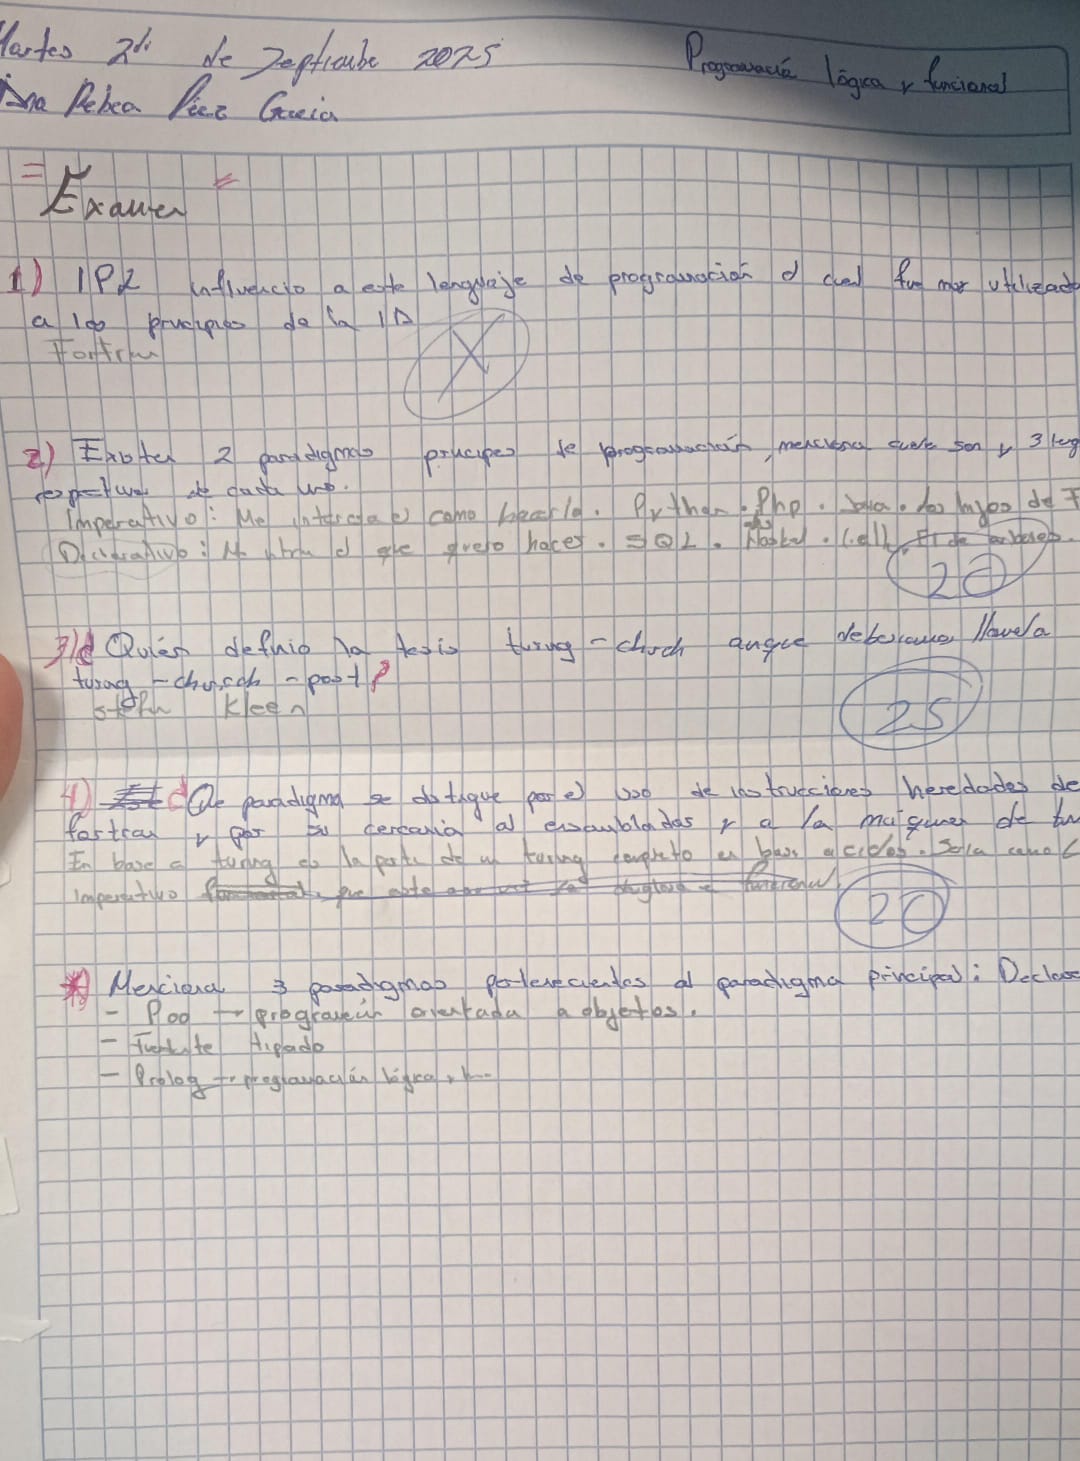 Martes de Septiembre 2025
Programación lógica y funcional
Ana Rebca Pérez Garcia
Examen
1) IPL influencio a este lenguaje de programación el cual fue mas utilizado
a los principios de la IA
Fortran
X
2) Existen 2 paradigmas principes de programación, menciona cuale son y 3 leng
respectivos de cada uno.
Imperativo: Me interesa el como hacerlo. Python. Php. Java. los hijos de F
Declarativo: el que quiero hacer. SQL. Haskel.
20
3) ¿Quién definio la tesis turing-chuch anque deberiamos llamarla
turing-church-post?
Kleen
25
4) ¿Que paradigma se distigue por el uso de instrucciones heredades de
fortran y por su cercania al ensamblados y a la maiquina de tu
En base a turing es la parte de un turing completo en base a ciclos. Seria como
imperativo
20
Menciona 3 paradigmas pertenecientes al paradigma principal: Declara
- Poo → programación orientada a objetos.
- Fuente tipado
- Prolog → programación lógica